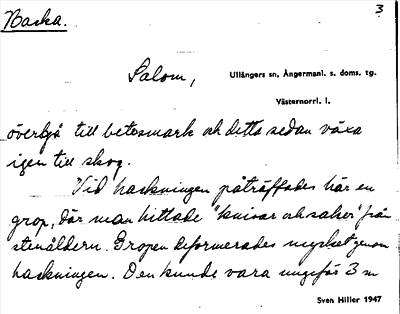 Backa.
3
Salom,
Ullångers sn, Ångermanl. s. doms. tg.
Västernorrl. l.
övergå till betesmark och detta sedan växa
igen till skog.
Vid hackningen påträffades här en
grop, där man hittade "knivar och saker" från
stenåldern. Gropen deformerades mycket genom
hackningen. Den kunde vara ungefär 3 m
Sven Hiller 1947